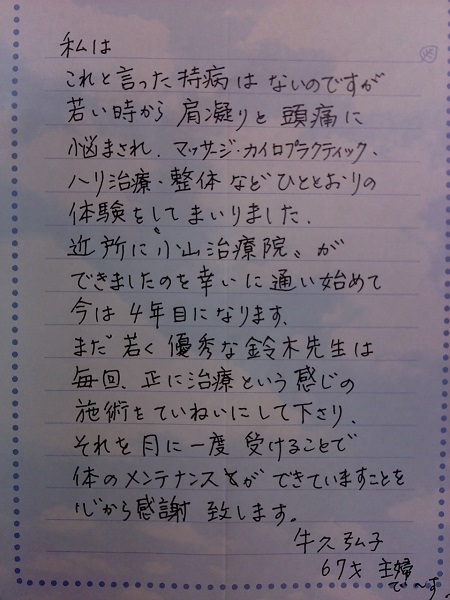 私は
これと言った持病は ないのですが
若い時から 肩凝りと 頭痛に
悩まされ、マッサージ・カイロプラクティック、
ハリ治療・整体 など ひととおりの
体験をしてまいりました。
近所に〝小山治療院〟が
できましたのを幸いに 通い始めて
今は 4年目になります。
まだ 若く 優秀な 鈴木先生は
毎回、正に治療という感じの
施術をていねいにして下さり、
それを 月に一度 受けることで
体のメンテナンスが できていますことを
心から感謝 致します。
牛久弘子
67才 主婦
で〜す。